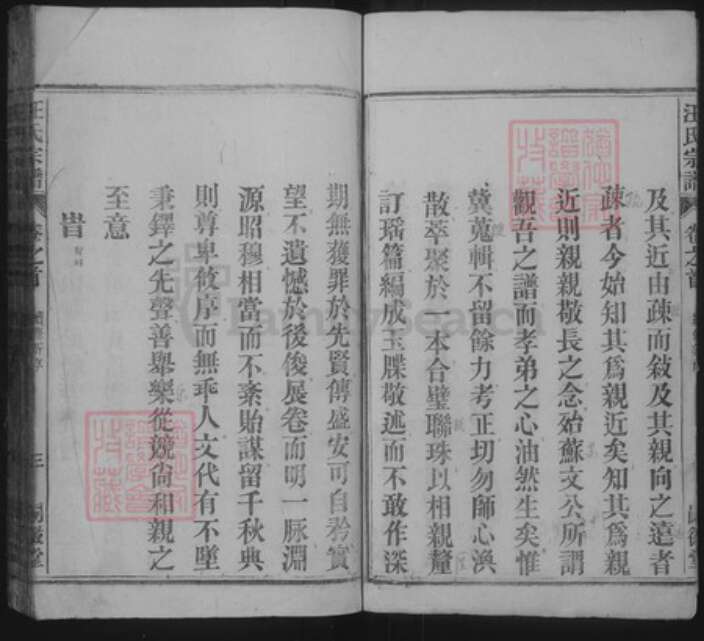 汪氏宗譜
卷之首
及其近由疎而敍及其親向之遠者
疎者今始知其為親近矣知其為親
近則親親敬長之念殆蘇文公所謂
觀吾之譜而孝弟之心油然生矣惟
冀蒐輯不留餘力考正切勿師心渙
散萃聚於一本合璧聯珠以相親釐
訂瑤篇編成玉牒敬述而不敢作深
期無獲罪於先賢傳盛安可自矜實
望不遺憾於後俊展卷而明一脈淵
源昭穆相當而不紊貽謀留千秋典
則尊卑攸序而無乖人文代有不墜
秉鐸之先聲善舉樂從競尙和親之
至意
旹
汪氏宗譜
卷之首
FamilySearch